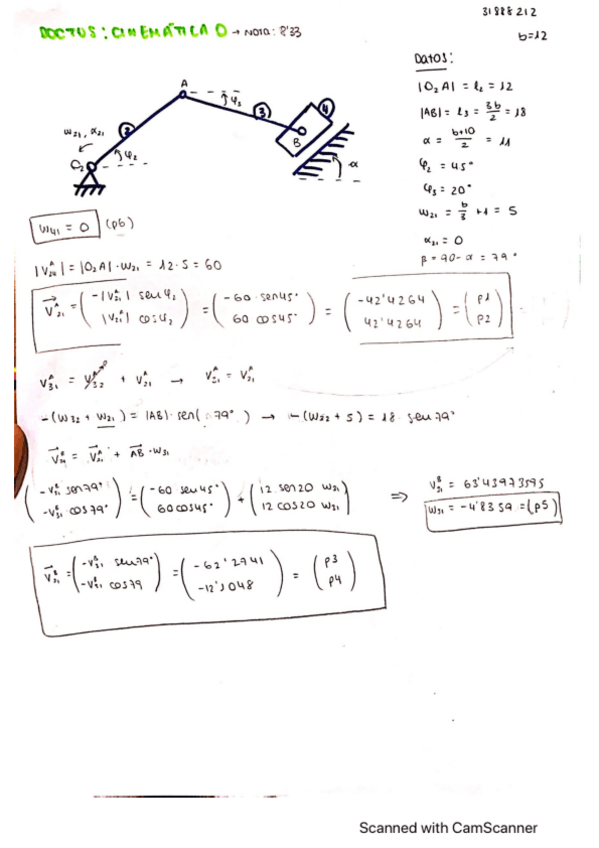 31888212
DOCTUS: CINEMÁTICA 0 → NOTA: 8'33
b=12
Datos:
|O₂A| = l₂ = 12
|AB| = l₃ = 3b/2 = 18
α = b+10/2 = 11
φ₂ = 45°
φ₃ = 20°
ω₂₁ = b/3 + 1 = 5
α₂₁ = 0
β = 90 - α = 79°
A
φ₃
3
4
B
α
ω₂₁, α₂₁
2
φ₂
O₂
ω₄₁ = 0 (p6)
|V₂₁ᴬ| = |O₂A| · ω₂₁ = 12 · 5 = 60
V₂₁ᴬ = (-|V₂₁ᴬ| sen φ₂ |V₂₁ᴬ| cos φ₂) = (-60 · sen45° 60 cos45°) = (-42'4264 42'4264) = (p1 p2)
V₃₁ᴬ = V₃₂ᴬ + V₂₁ᴬ → V₃₁ᴬ = V₂₁ᴬ
-(ω₃₂ + ω₂₁) = |AB| · sen(79°) → -(ω₃₂ + 5) = 18 · sen79°
V₃₁ᴮ = V₂₁ᴬ + AB · ω₃₁
(-V₃₁ᴮ sen79° -V₃₁ᴮ cos79°) = (-60 sen45° 60cos45°) + (12 sen20 ω₃₁ 12 cos20 ω₃₁) ⇒ V₃₁ᴮ = 63'43973595
ω₃₁ = -4'8359 = (p5)
V₃₁ᴮ = (-V₃₁ᴮ sen79° -V₃₁ᴮ cos79) = (-62'2741 -12'1048) = (p3 p4)
Scanned with CamScanner